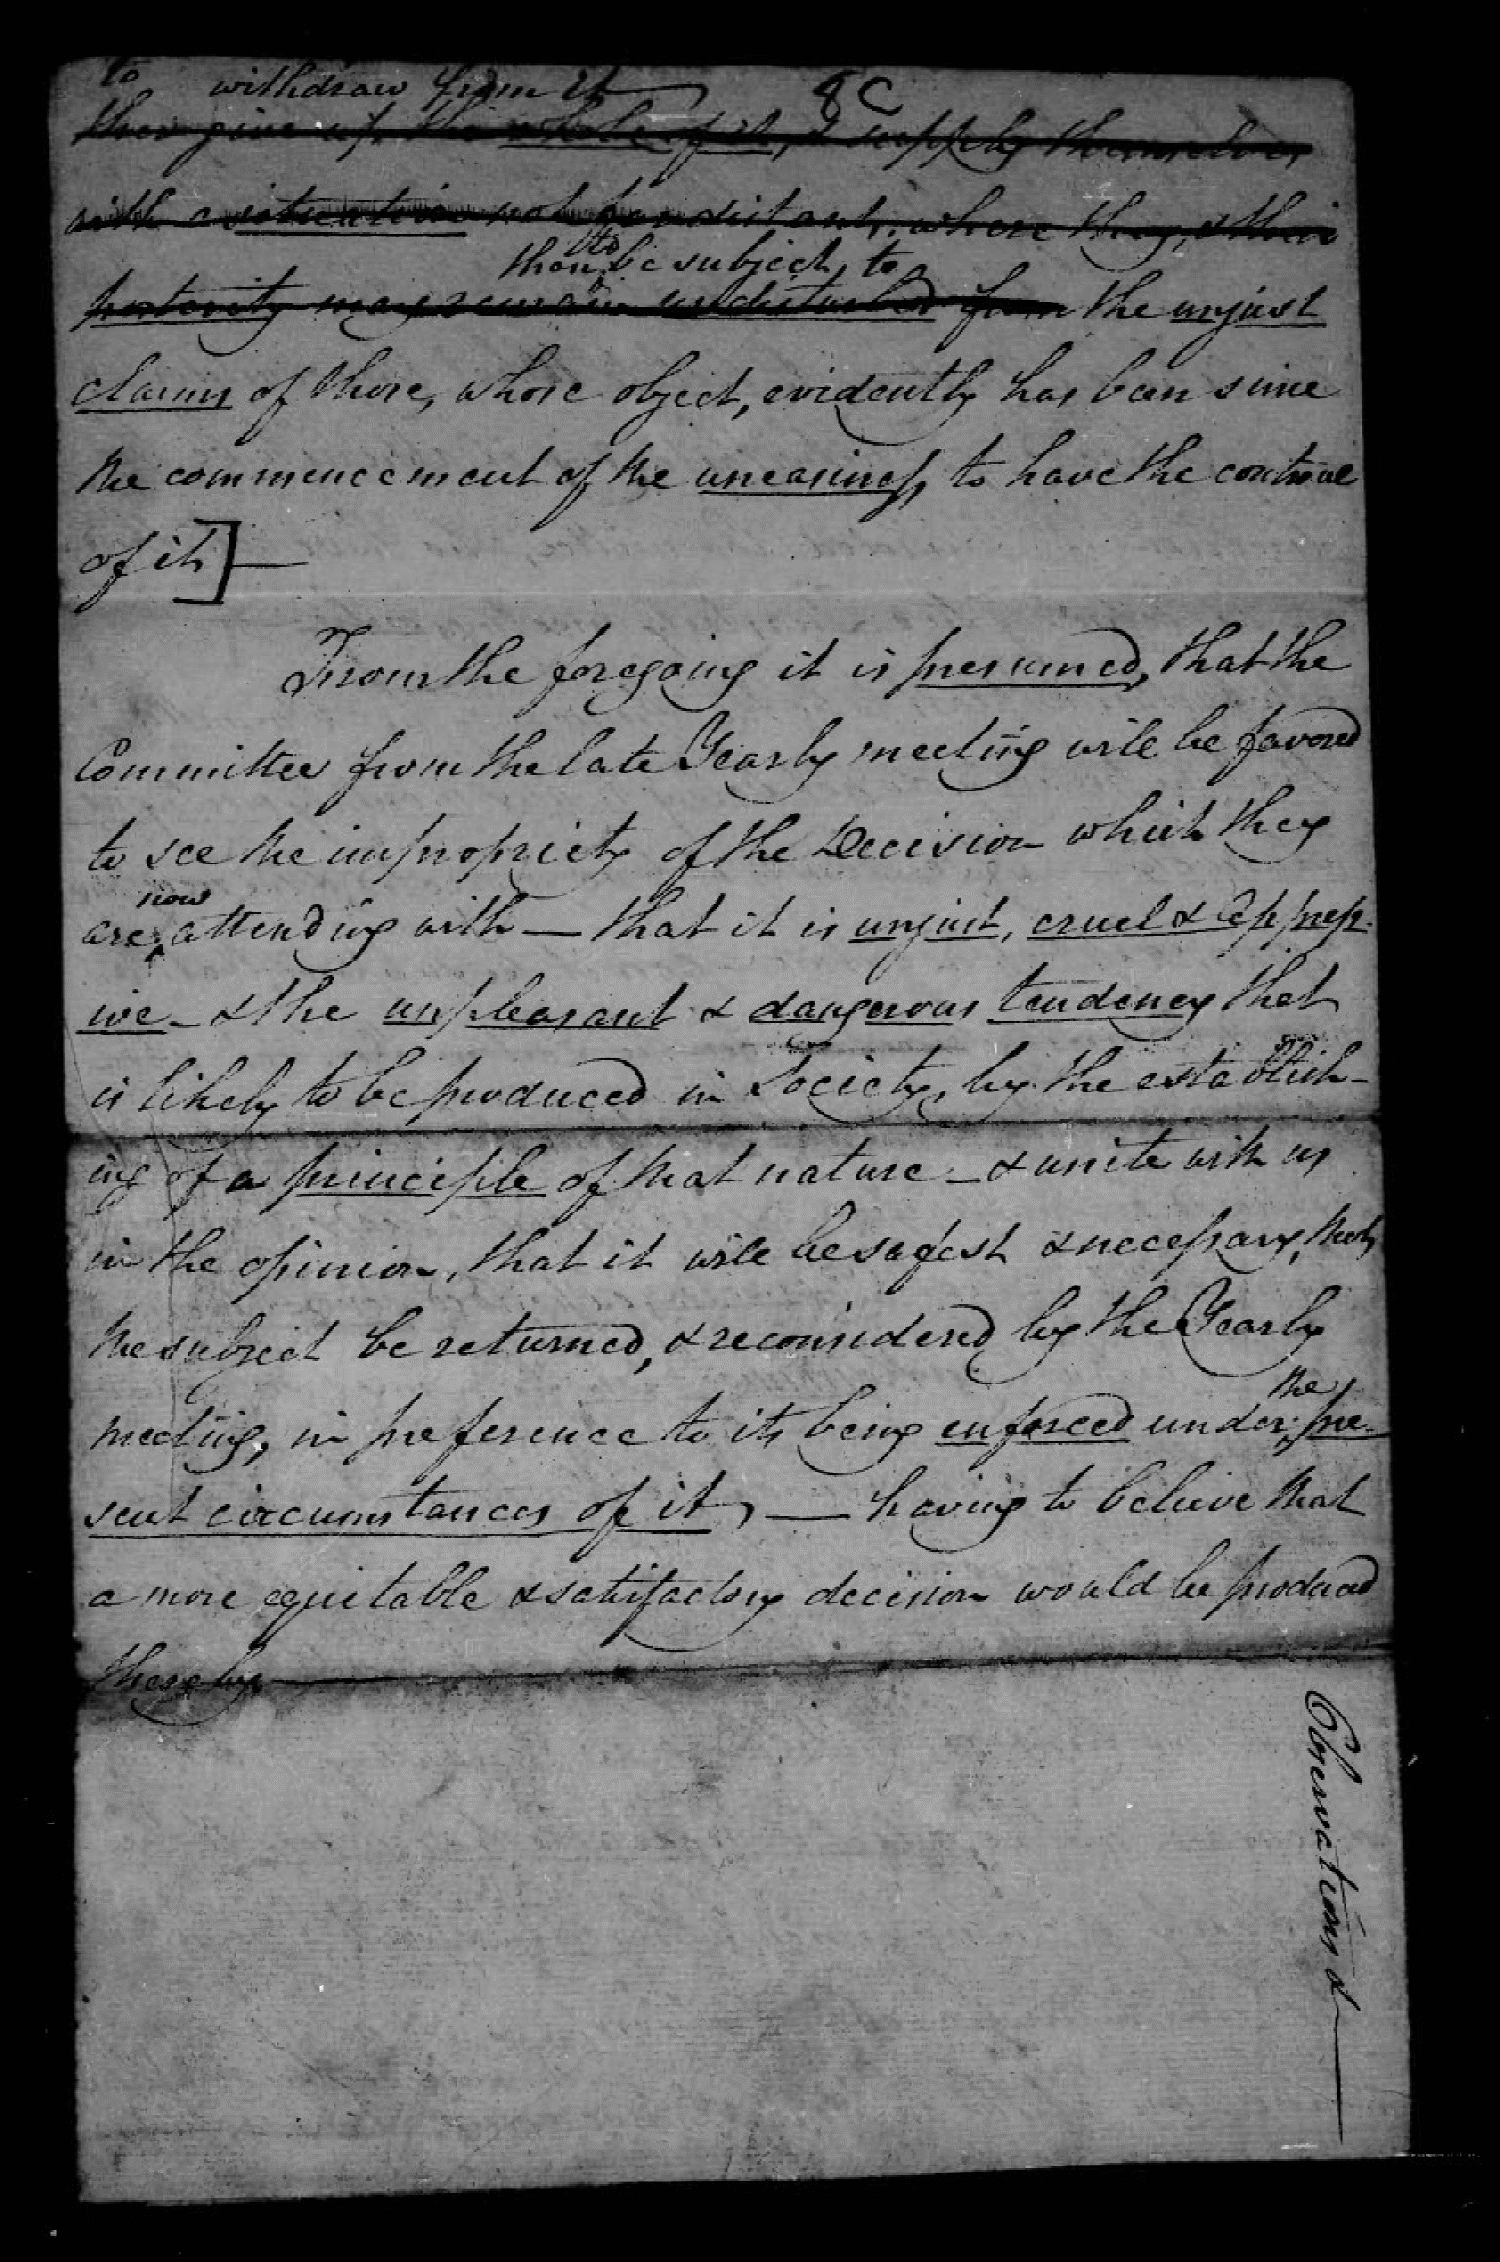 to withdraw from it 8C
then give up the whole of it, & supply themselves
with a situation not far distant, where they, & their
than to be subject to
posterity may remain undisturbed from the unjust
claims of those, whose object, evidently has been since
the commencement of the uneasiness, to have the controul
of it]—
From the foregoing it is presumed, that the
Committee from the late Yearly meeting will be favored
to see the impropriety of the Decision which they
now
are attending with — that it is unjust, cruel & oppress-
ive — & the unpleasant & dangerous tendency that
is likely to be produced in Society, by the establish-
ing of a principle of that nature — & unite with us
in the opinion, that it will be safest & necessary, that
the subject be returned, & reconsidered by the Yearly
the
meeting, in preference to its being enforced under pre-
sent circumstances of it, — having to believe that
a more equitable & satisfactory decision would be produced
thereby —
Observations &—